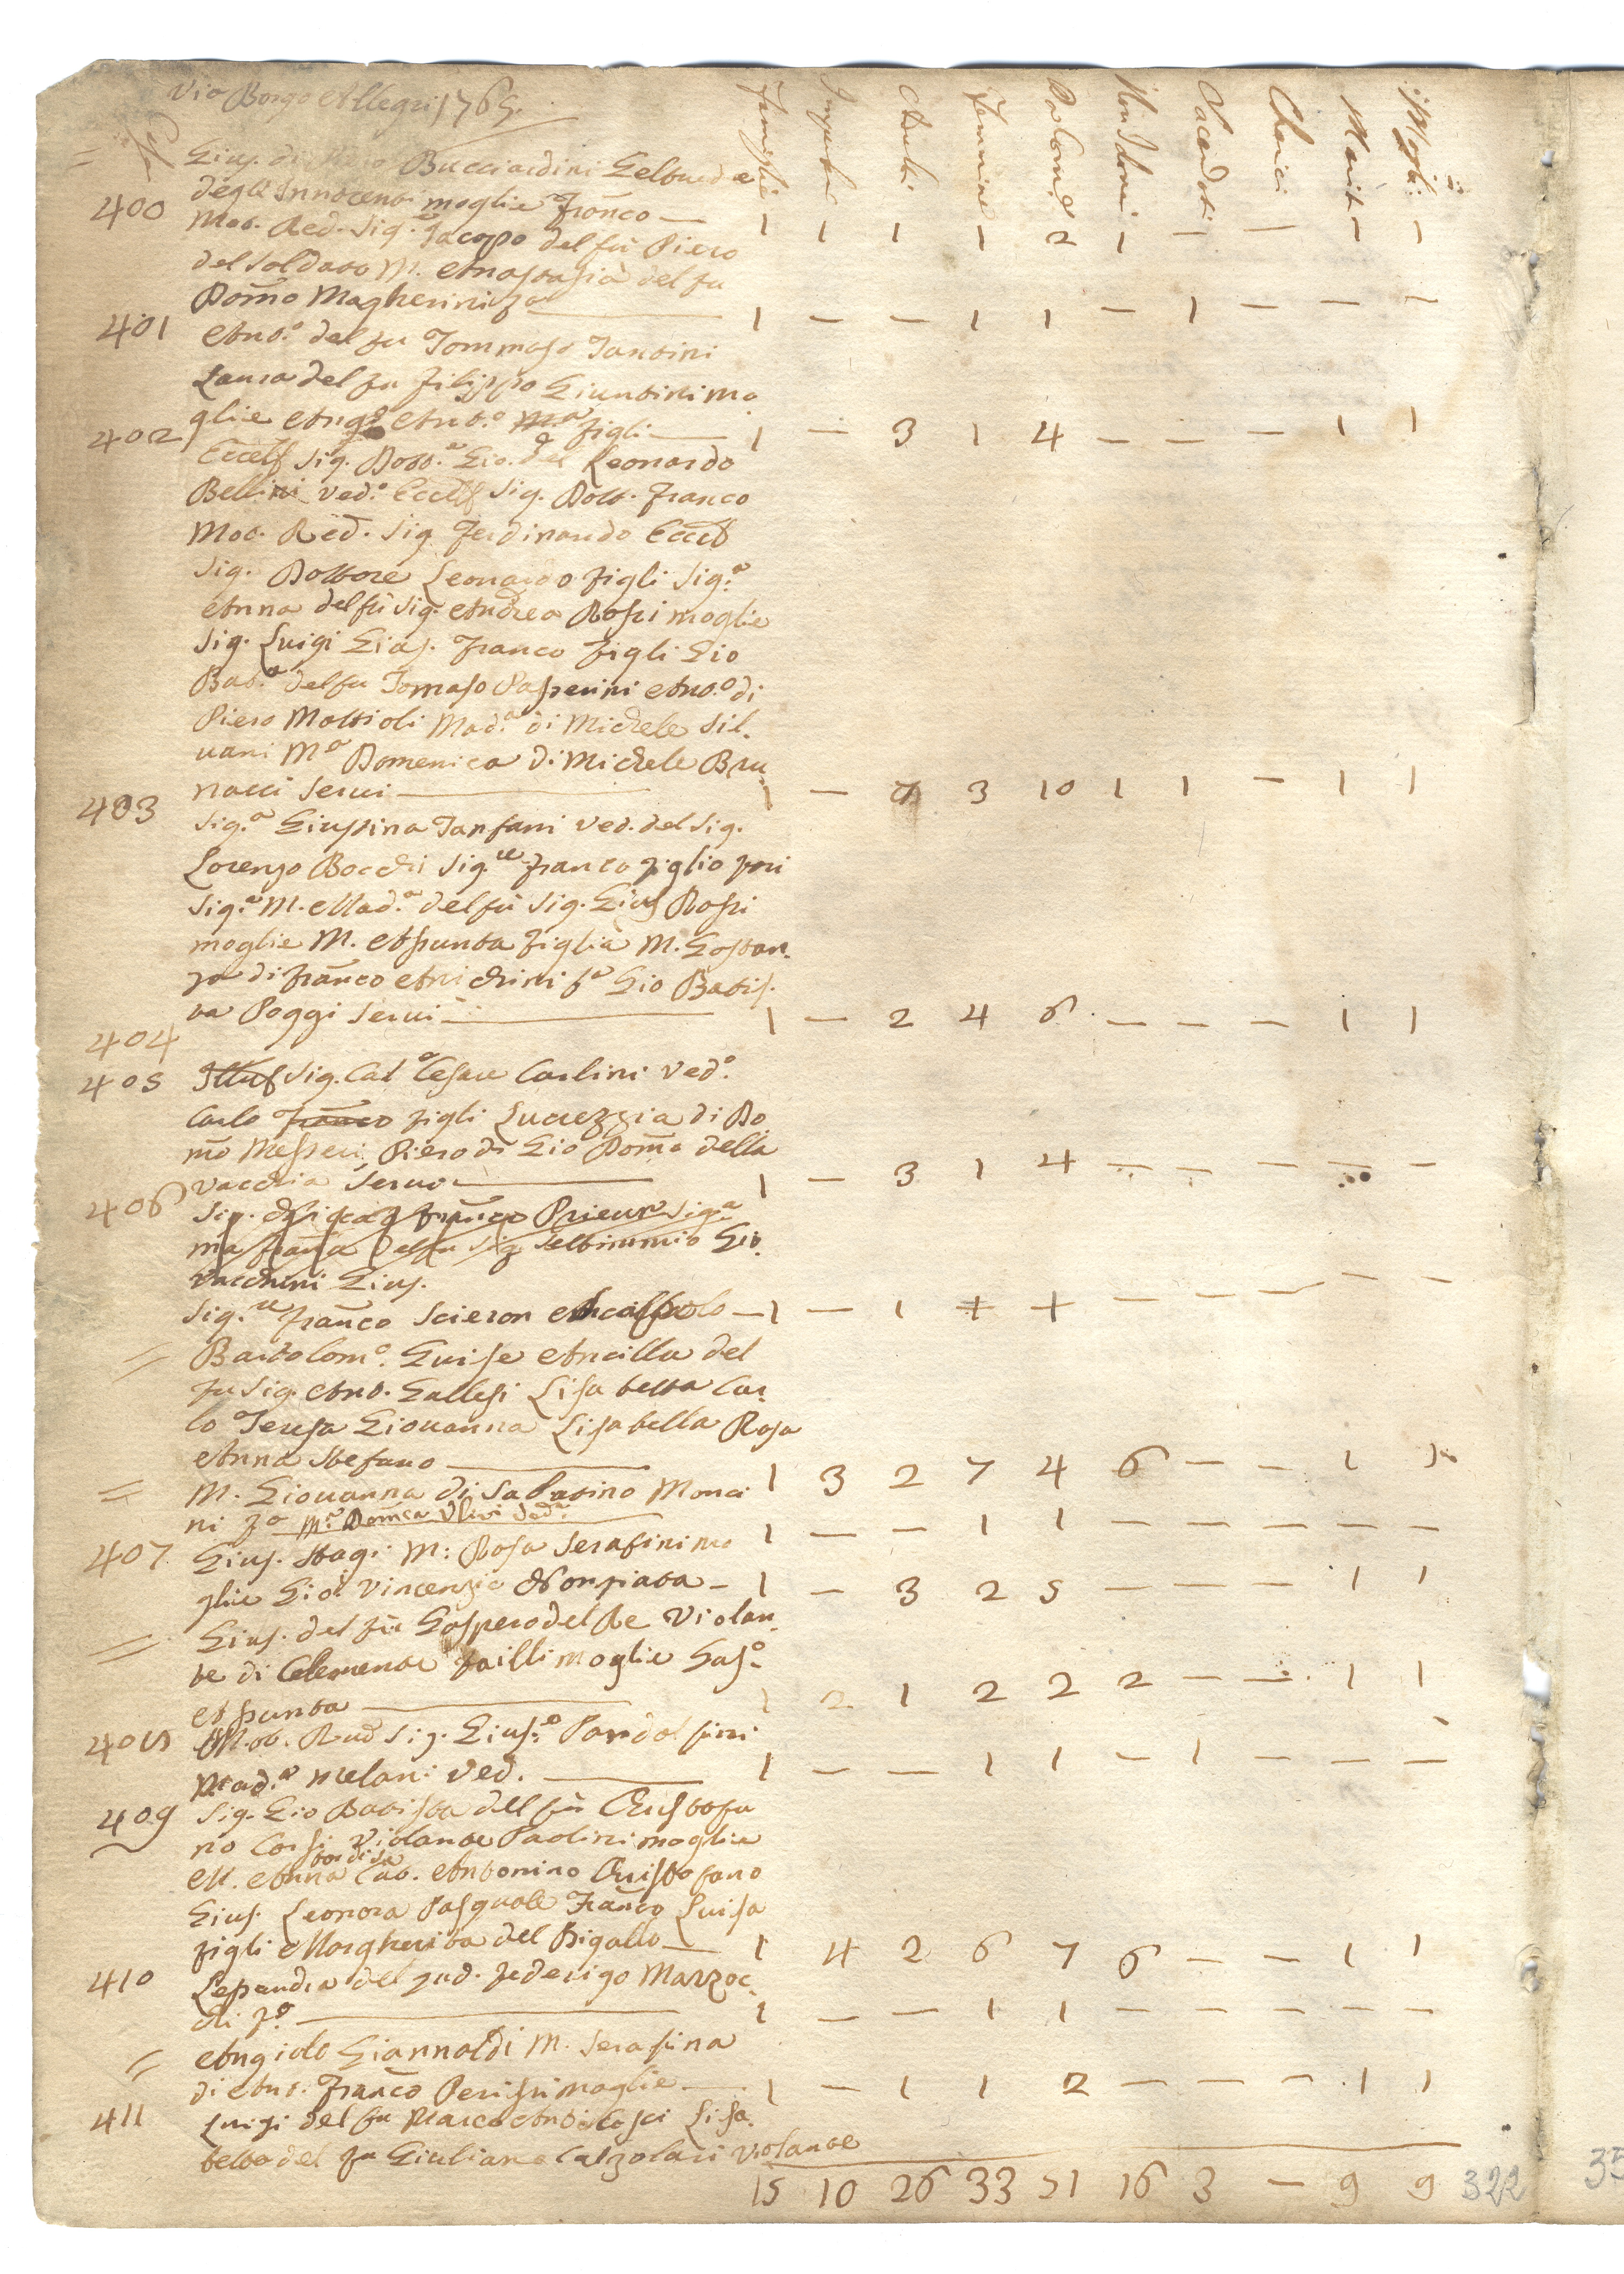 Via Borgo Allegri 1765.
Case Famiglie Impuberi Adulti Femmine Da Com.e Non Idonei Sacerdoti Cherici Mariti Mogli
= Gius. di Bucciardini Geltrude
degli Innocenti moglie Franco — 1 1 1 1 2 1 — — 1 1
400 Mol. Red. Sig.e Jacopo del fu Piero
del Soldato M. Anastasia del fu
Dom̃o Magherini fa 1 — — 1 1 — 1 — — —
401 Ant.o del fu Tommaso Tantini
Laura del fu Filippo Giuntini mo
glie Ang.o Ant.o figli — 1 — 3 1 4 — — — 1 1
402 Eccell Sig. Dott.e Gio. del Leonardo
Bellini ved.o Eccell Sig. Dott. Franco
Mol. Red. Sig. Ferdinando Eccell
Sig. Dottore Leonardo figli Sig.a
Anna del fu Sig. Andrea Rossi moglie
Sig. Luigi Gius. Franco figli Gio
Bat.a del fu Tomaso Passerini Ant.o di
Piero Mattioli Mad.a di Michele Sil.
vani M.a Domenica di Michele Bru
nacci servi — 1 — 7 3 10 1 1 — 1 1
403 Sig.a Giustina Tanfani ved. del Sig.
Lorenzo Bocchi Sig.re Franco figlio
Sig.a M. Mad.a del fu Sig. Gius Rossi
moglie M. Assunta figlia M. Gostan.
za di Franco Anichini f.a Gio Batis.
ta Poggi servi — 1 — 2 4 6 — — — 1 1
404
405 Illus Sig. Cal Cesare Carlini ved.o
Carlo Franco figli Lucrezzia di Do
m̃o Messeri Piero di Gio Dom̃o della
Vacchia servo — 1 — 3 1 4 — — — — —
406 Sig. Franco Prieur Sig.a
ma Fran̂a del fu Sig Settimmio Gio.
vacchini Gius.
Sig.re Franco Scieron — 1 — 1 + + — — — — —
= Bartolom.o Guise Ancilla del
fu Sig. Ant. Gallesi Lisabetta Car.
lo Teresa Giovanna Lisabella Rosa
Anna Stefano — 1 3 2 7 4 6 — — 1 1
= M. Giovanna di Sabatino Monci
ni fa M.a Dom̃ca Ulivi Ved.a 1 — — 1 1 — — — — —
407 Gius. Stagi M: Rosa Serafini mo
glie Gio. Vincenzio Nonziata — 1 — 3 2 5 — — — 1 1
= Gius. del fu Gaspero del Re Violan.
te di Clemente Failli moglie Gas.o
Assunta — 1 2 1 2 2 2 — — 1 1
408 M.ol. Rud Sig. Gius.e Pandolfini
Mad.a Melani Ved. — 1 — — 1 1 — 1 — — —
409 Sig. Gio Batista del fu Cristofa
no Corsi Violante Paolini moglie
M. Anna Cat. Antonino Cristofano
Gius. Leonora Pasquale Franco Luisa
figli Margherita del Bigallo — 1 4 2 6 7 6 — — 1 1
410 Lessandra del qud. Federigo Marzoc.
chi f.a — 1 — — 1 1 — — — — —
= Angiolo Giannoldi M. Serafina
di Ant. Franco Perissi moglie — 1 — 1 1 2 — — — 1 1
411 Luigi del fu Marco Ant.o Cosci Lisa.
betta del fu Giuliano Calzolari Violante
15 10 26 33 51 16 3 — 9 9 322
35